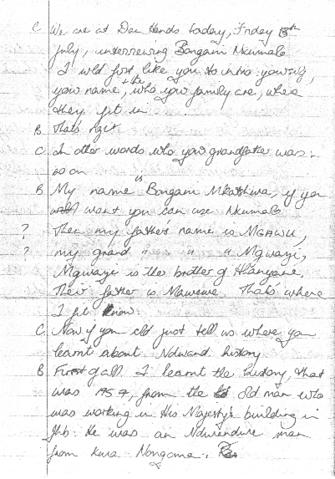 C. We are at Dee Hends today, Friday 13th
July, interviewing Bongani Nkumalo
I wld first like you to intro yourself,
your name, + the who your family are, where
they fit in.
B. That's right.
C. In other words who your grandfather was
so on
B. "My name Bongani Mkatshwa, if you
want you can use Nkumalo
? Then my fathers name is MGAWU,
? my grand " " " Mgwayi,
Mgwayi is the brother of Hlanyane.
Their father is Mawewe. That's where
I fit know.
C. Now if you cld just tell us where you
learnt about Ndwand history
B. First of all. I learnt the history, that
was 1959, from the old man who
was working in His Majesty's building in
Jhb. He was an Ndwandwe man
from kwa- Nongoma.